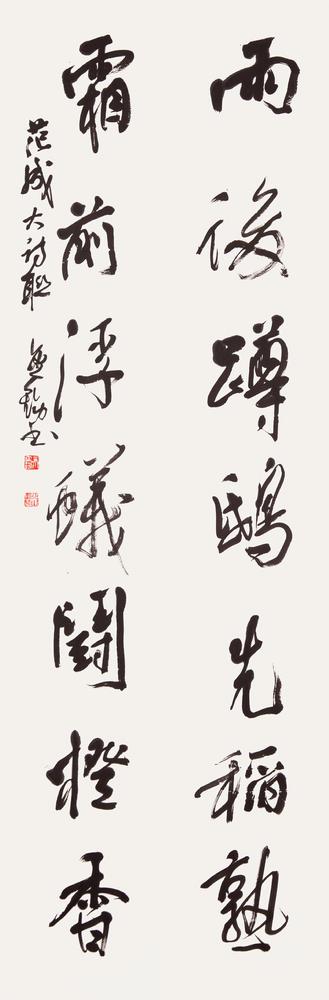 雨後蹲鴟先稻熟
霜前浮蟻鬭橙香
范成大詩聯